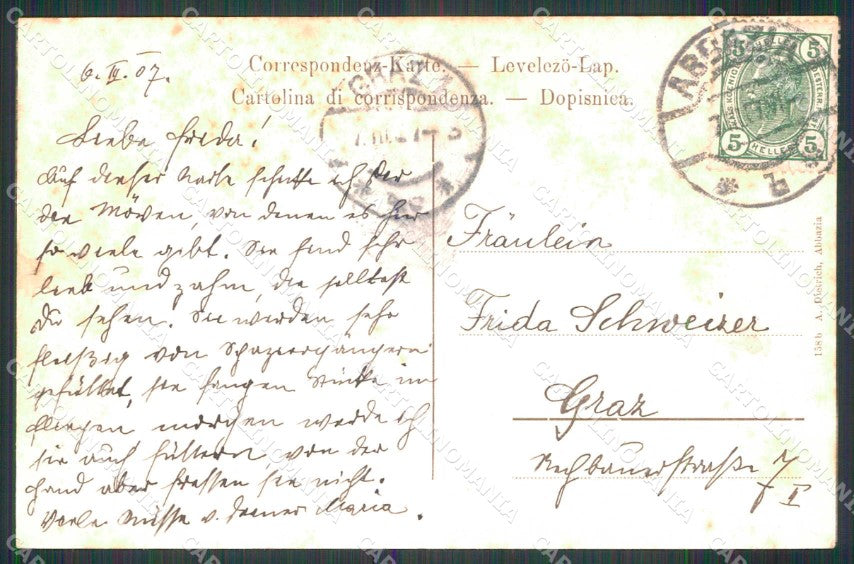 Correspondenz-Karte. — Levelezö-Lap.
Cartolina di corrispondenza. — Dopisnica.
6. III. 07.
Liebe Frida!
Auf dieser Karte schicke ich Dir
die Möven, von denen es hier
so viele gibt. Sie sind sehr
lieb und zahm, die solltest
Du sehen. Sie werden sehr
fleiszig von Spaziergängern
gefüttert, sie fangen Stücke im
fliegen morgen werde ich
sie auch füttern von der
Hand aber fressen sie nicht.
Viele Küsse v. Deiner Maria.
Fräulein
Frida Schweizer
Graz
Rechbauerstraße 7
I
ABBAZIA
1
GRAZ
5 HELLER 5
5 HELLER 5
158b A. Dietrich, Abbazia
CARTOLINOMANIA